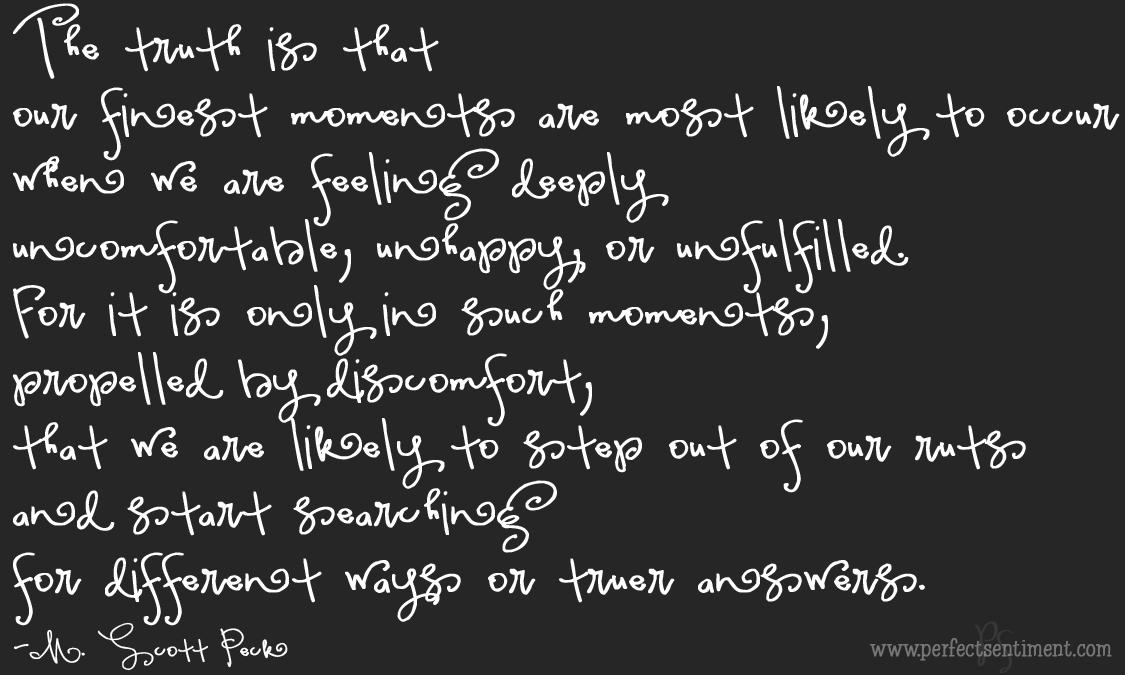 The truth is that
our finest moments are most likely to occur
when we are feeling deeply
uncomfortable, unhappy, or unfulfilled.
For it is only in such moments,
propelled by discomfort,
that we are likely to step out of our ruts
and start searching
for different ways or truer answers.
-M. Scott Peck
www.perfectsentiment.com
PS